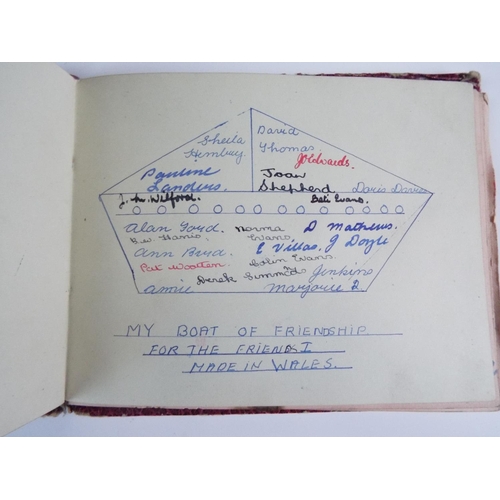 Sheila
Hembry.
David
Thomas.
J Edwards.
Pauline
Landers.
Joan
Shepherd.
Doris Davies
J. M. Wilford.
Beti Evans.
Alan Ford.
Norma
Evans.
D Mathews.
Ann Bird.
E Villas.
J Doyle
Pat Wootten
Colin Evans
Derek Simmonds
Jenkins
Annie
Marjorie
MY BOAT OF FRIENDSHIP
FOR THE FRIENDS I
MADE IN WALES.